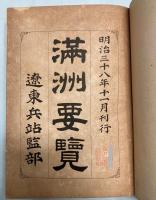 明治三十八年十一月刊行
滿洲要覽
遼東兵站監部